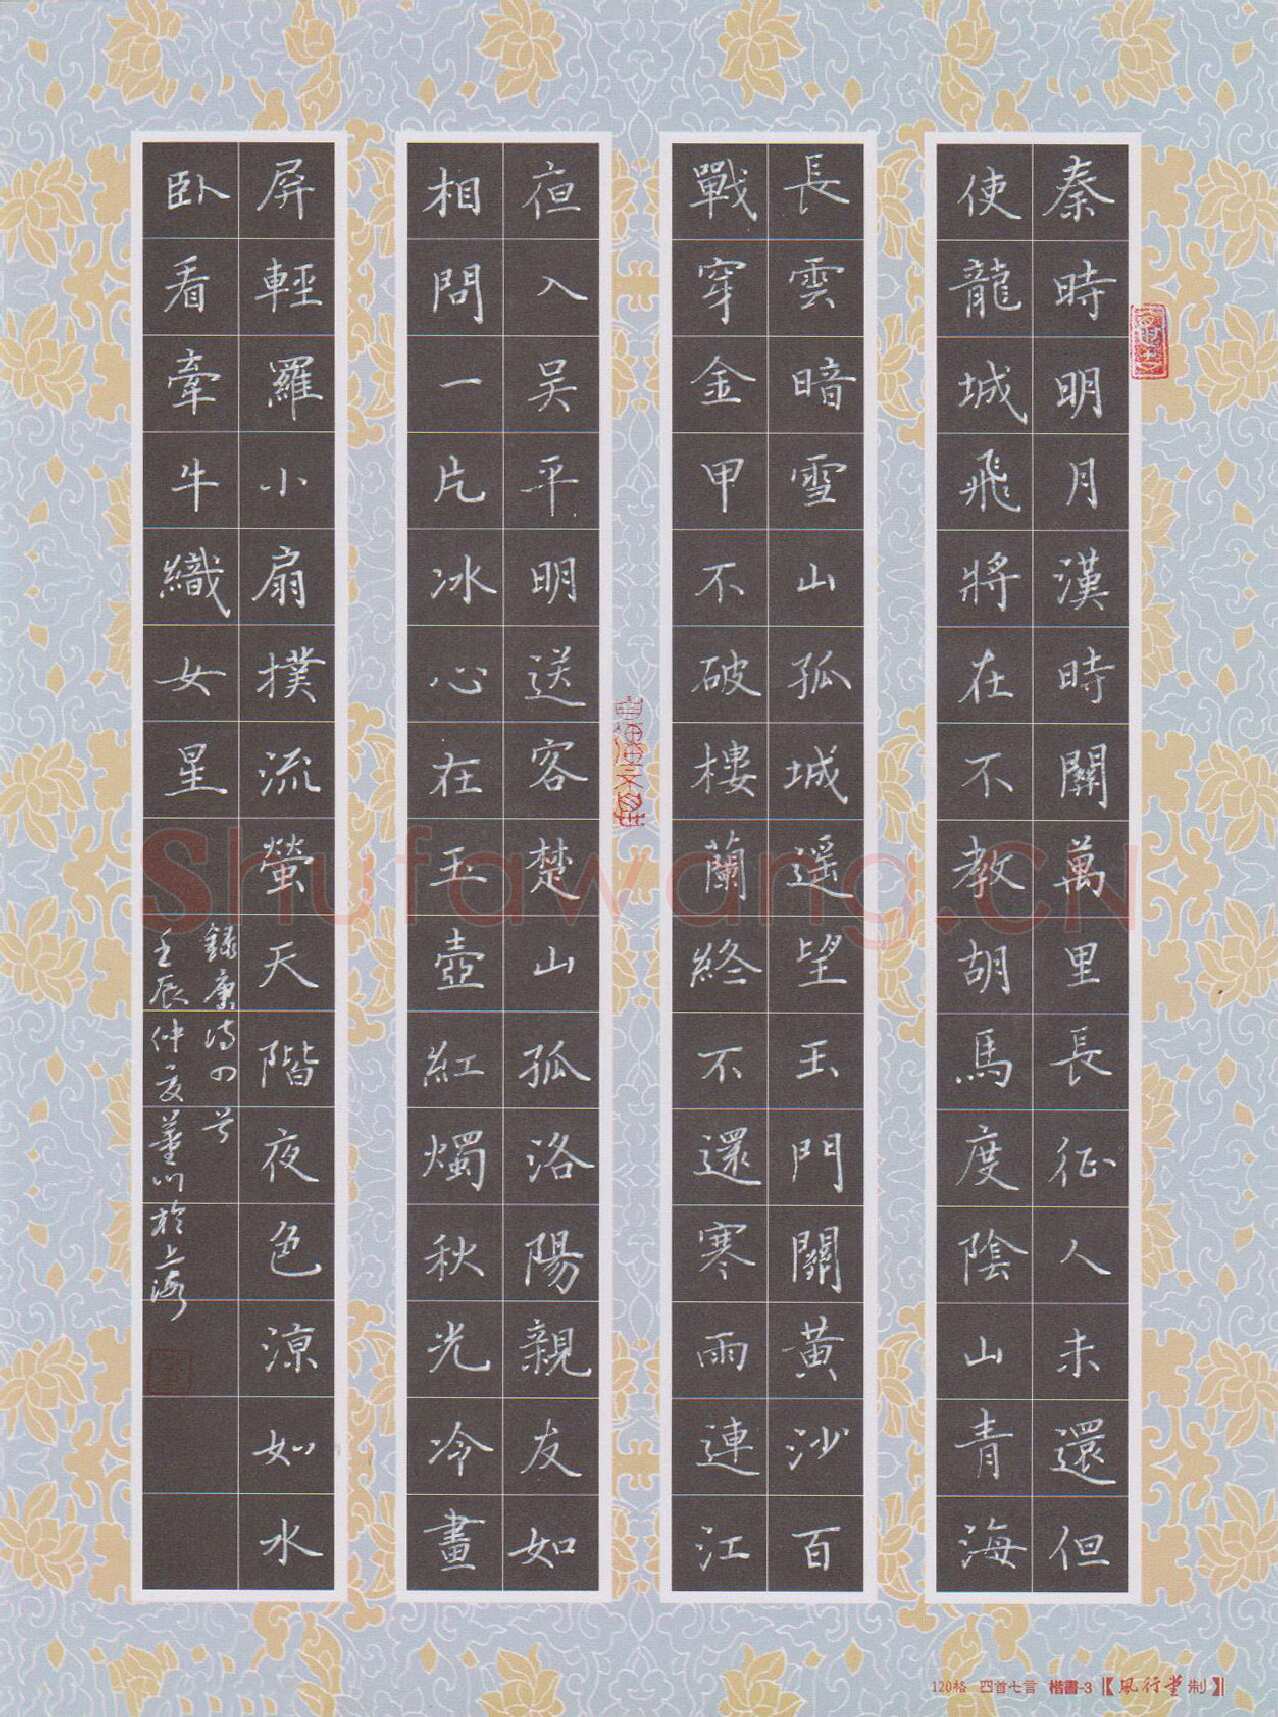 秦時明月漢時關萬里長征人未還但
使龍城飛將在不教胡馬度陰山青海
長雲暗雪山孤城遥望玉門關黃沙百
戰穿金甲不破樓蘭終不還寒雨連江
亱入吴平明送客楚山孤洛陽親友如
相問一片冰心在玉壺紅燭秋光冷畫
屏輕羅小扇撲流螢天階夜色涼如水
卧看牽牛織女星
錄唐詩四首
壬辰仲夏董川於上海
Shufawang.CN
120格 四首七言 楷書-3 【風行堂制】